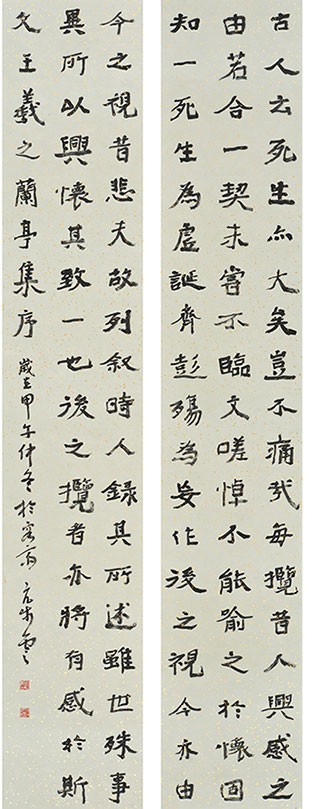 古人云死生亦大矣豈不痛哉每攬昔人興感之
由若合一契未嘗不臨文嗟悼不能喻之於懷固
知一死生為虛誕齊彭殤為妄作後之視今亦由
今之視昔悲夫故列敘時人錄其所述雖世殊事
異所以興懷其致一也後之攬者亦將有感於斯
文王羲之蘭亭集序 歲在甲午仲冬於